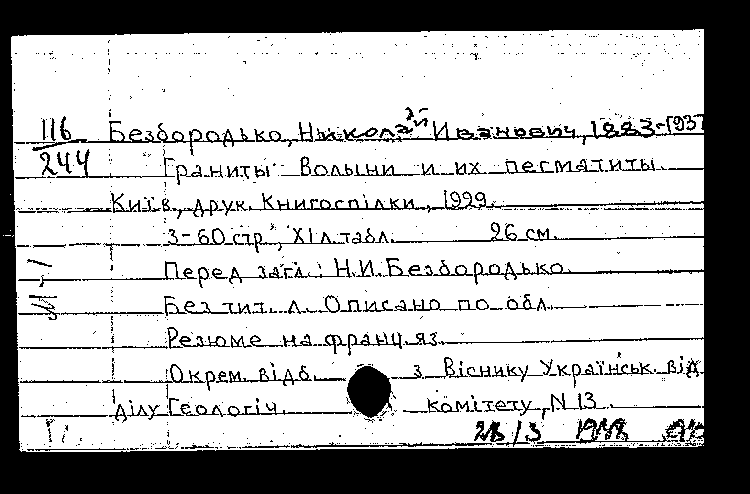 116
244
Безбородько, Николай Иванович, 1883-1937
Граниты Волыни и их пегматиты.
Київ, друк. Книгоспілки, 1929.
3-60 стр., XI л. табл. 26 см.
Перед загл.: Н.И.Безбородько.
Без тит. л. Описано по обл.
Резюме на франц. яз.
Окрем. відб. з Віснику Українськ. від
ділу Геологіч. комітету, N 13.